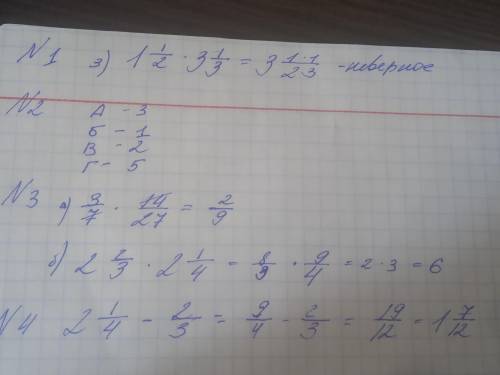 N1 з) 1 1/2 · 3 1/3 = 3 1·1/2·3 - неверное
N2 А - 3
Б - 1
В - 2
Г - 5
N3 а) 3/7 · 14/27 = 2/9
б) 2 2/3 · 2 1/4 = 8/3 · 9/4 = 2 · 3 = 6
N4 2 1/4 - 2/3 = 9/4 - 2/3 = 19/12 = 1 7/12